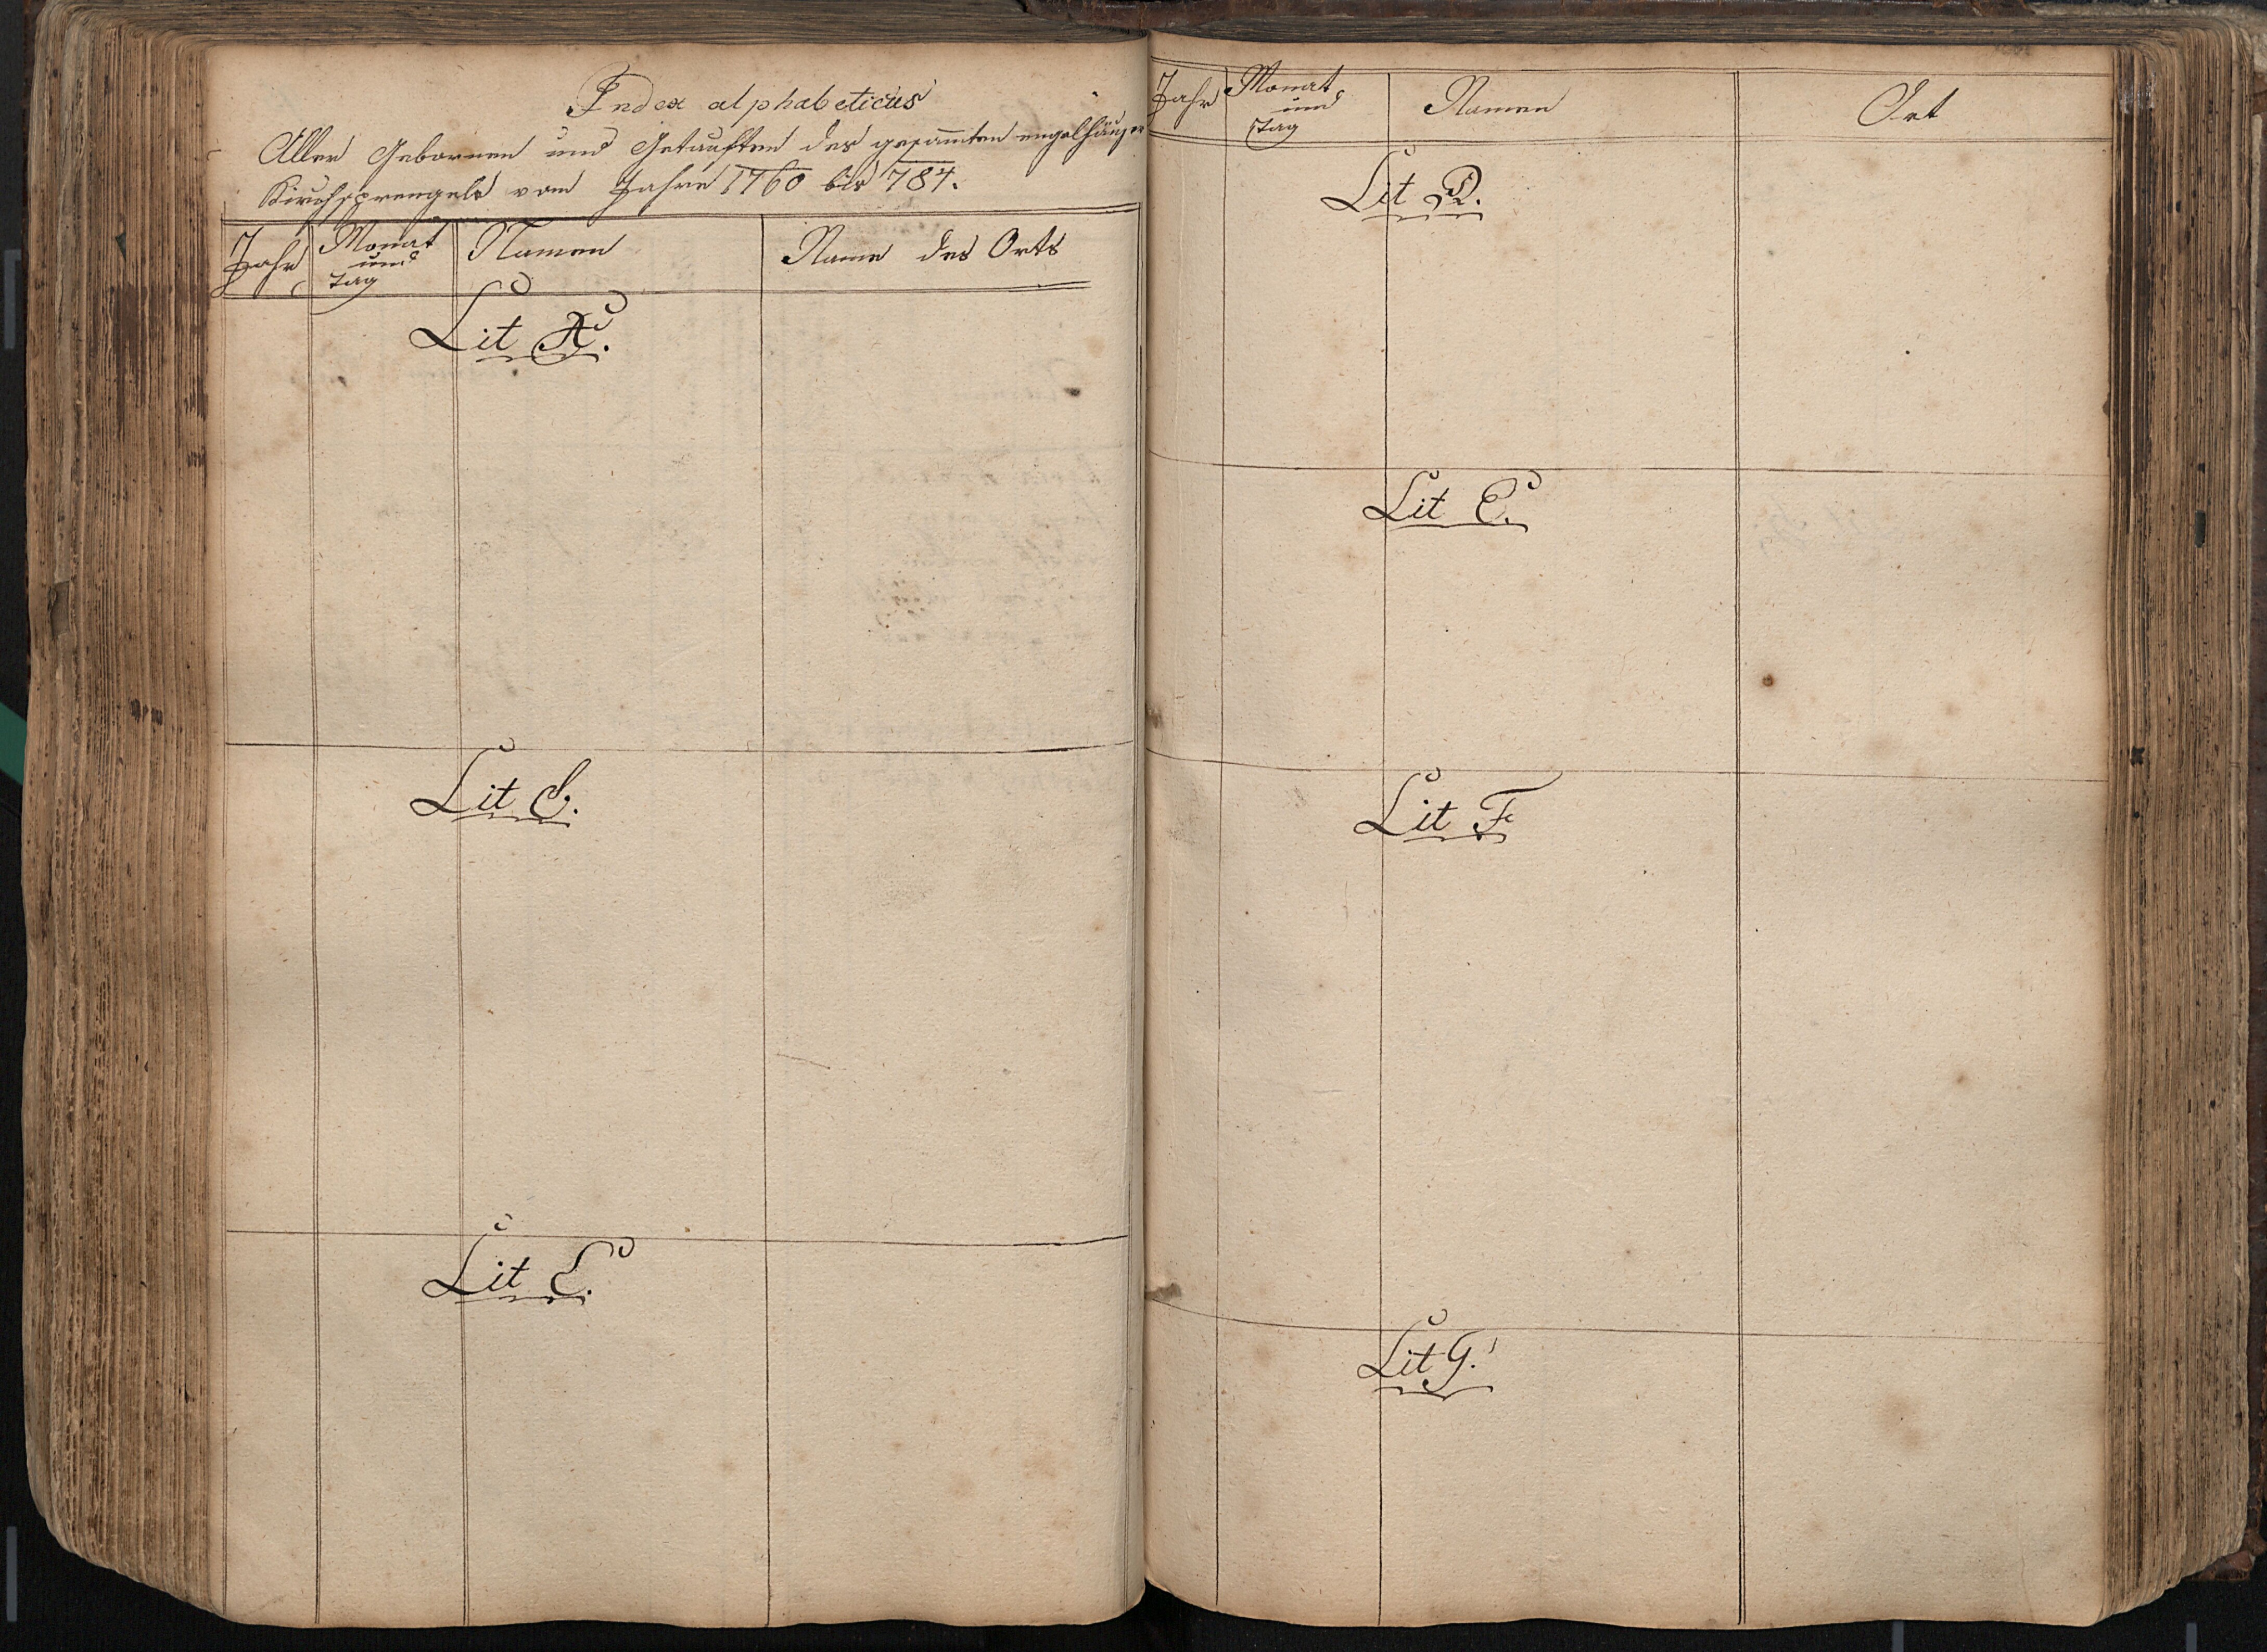 Index alphabeticus
Aller Gebornen und Getauften des gesam̅ten engelhäuser
Kirchsprengels vom Jahre 1760 bis 784.
Jahr Monat und Tag Namen Name des Orts
Lit A.
Lit
Lit
Jahr Monat und Tag Namen Ort
Lit D.
Lit E.
Lit F
Lit G.